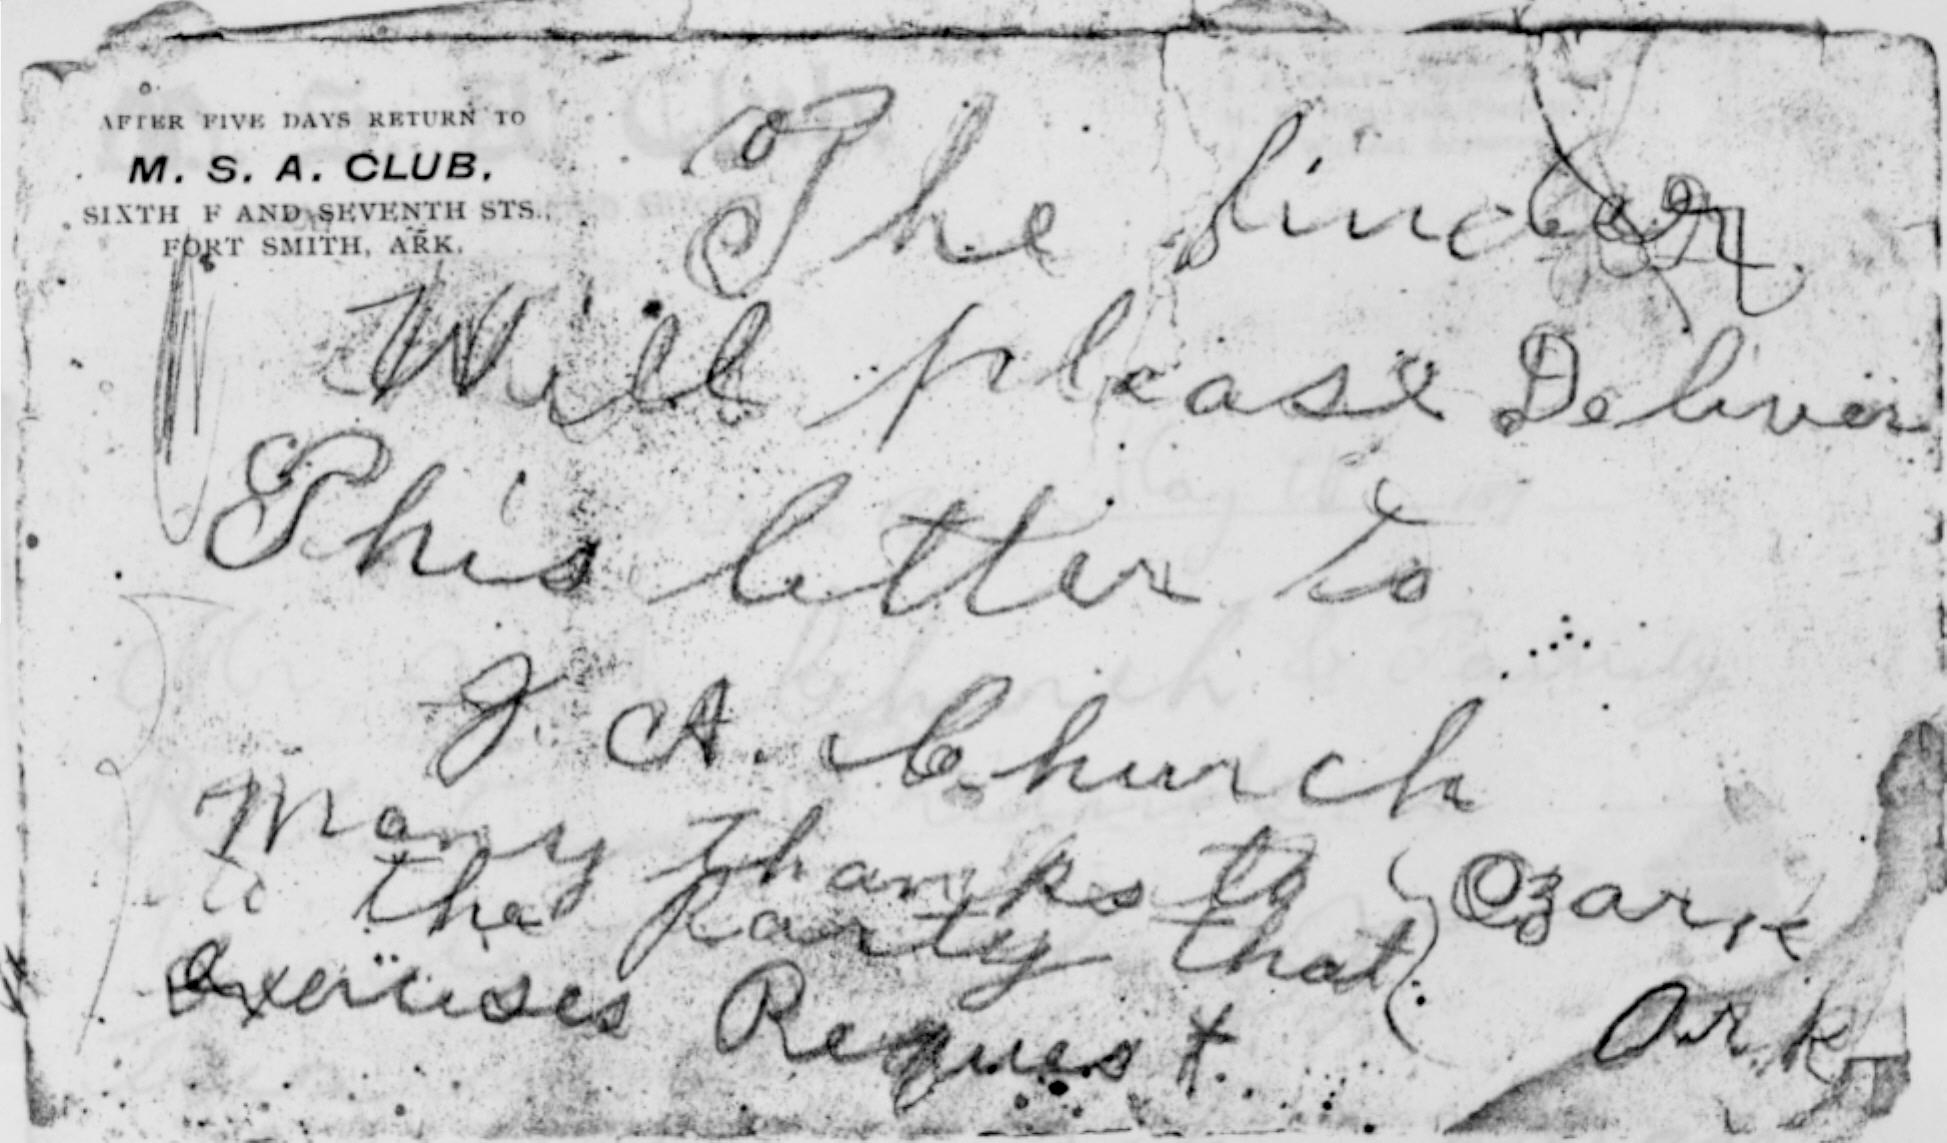 AFTER FIVE DAYS RETURN TO
M. S. A. CLUB.
SIXTH F AND SEVENTH STS.,
FORT SMITH, ARK.
The finder
Will please Deliver
This letter to
J. A. Church
Many thanks to
to the party that
exercises Request.
Ozark
Ark